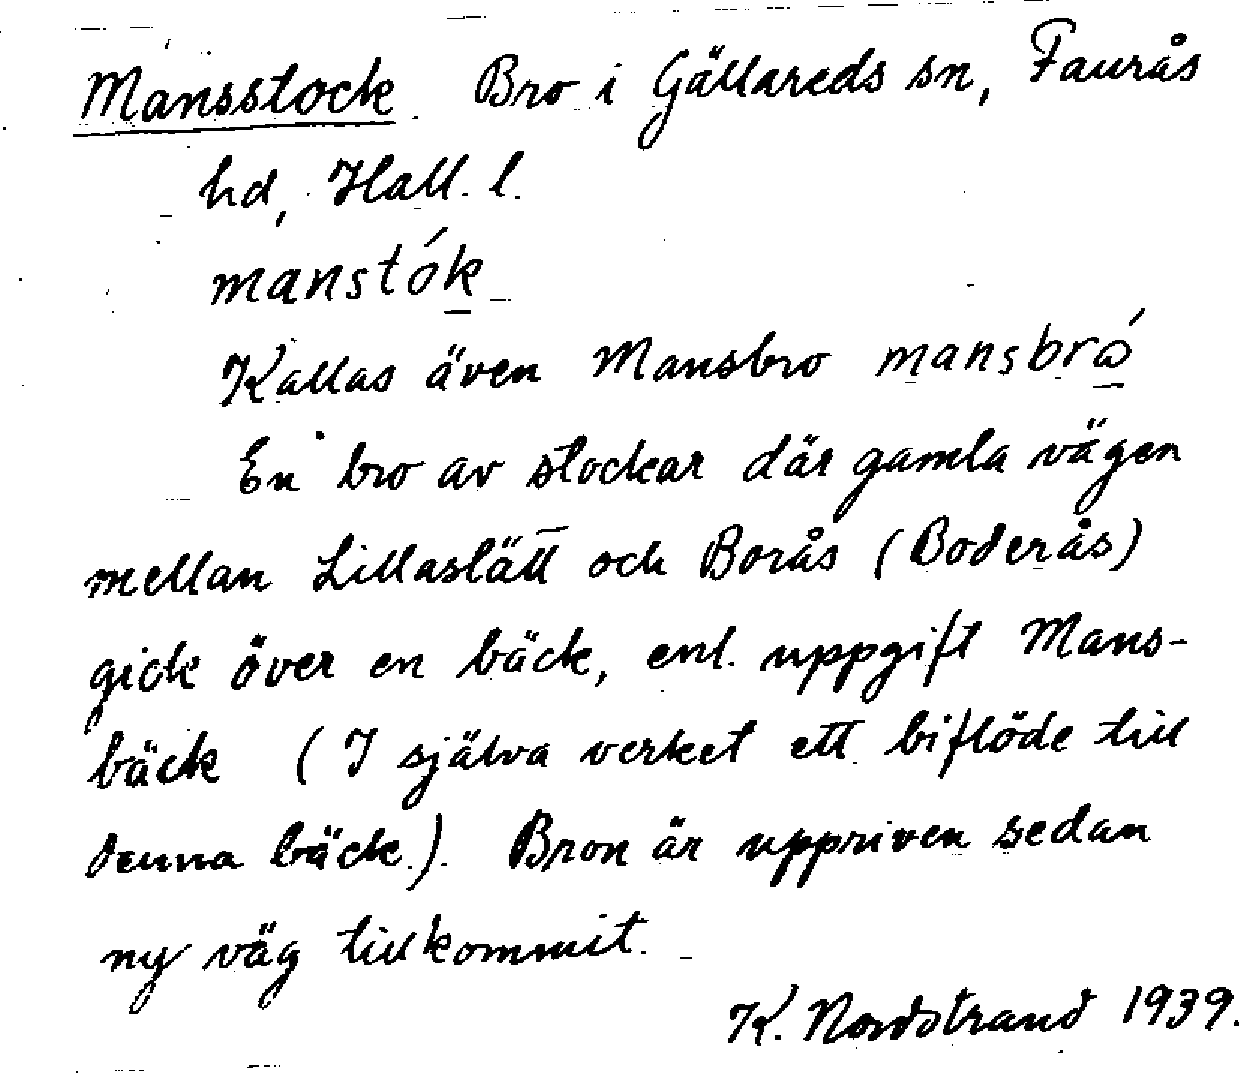 Mansstock. Bro i Gällareds sn, Faurås
hd, Hall. l.
manstók
Kallas även Mansbro mansbró
En bro av stockar där gamla vägen
mellan Lillaslätt och Borås (Boderås)
gick över en bäck, enl. uppgift Mans-
bäck (I själva verket ett biflöde till
denna bäck.). Bron är uppriven sedan
ny väg tillkommit.
K. Nordstrand 1939.